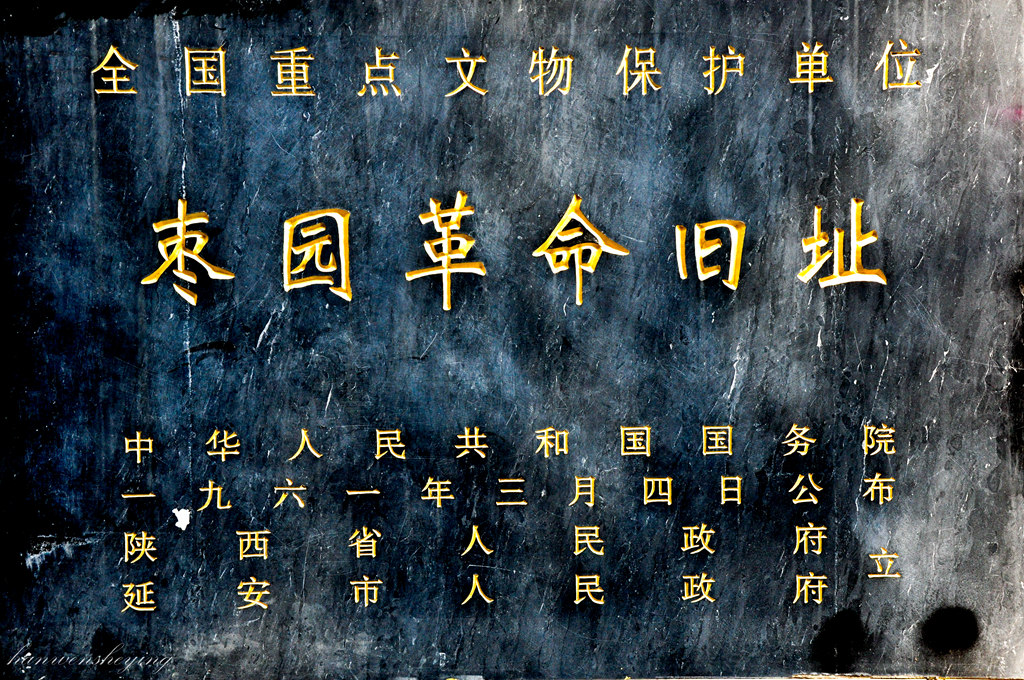 全国重点文物保护单位
枣园革命旧址
中华人民共和国国务院
一九六一年三月四日公布
陕西省人民政府
延安市人民政府
立
hanwensheying